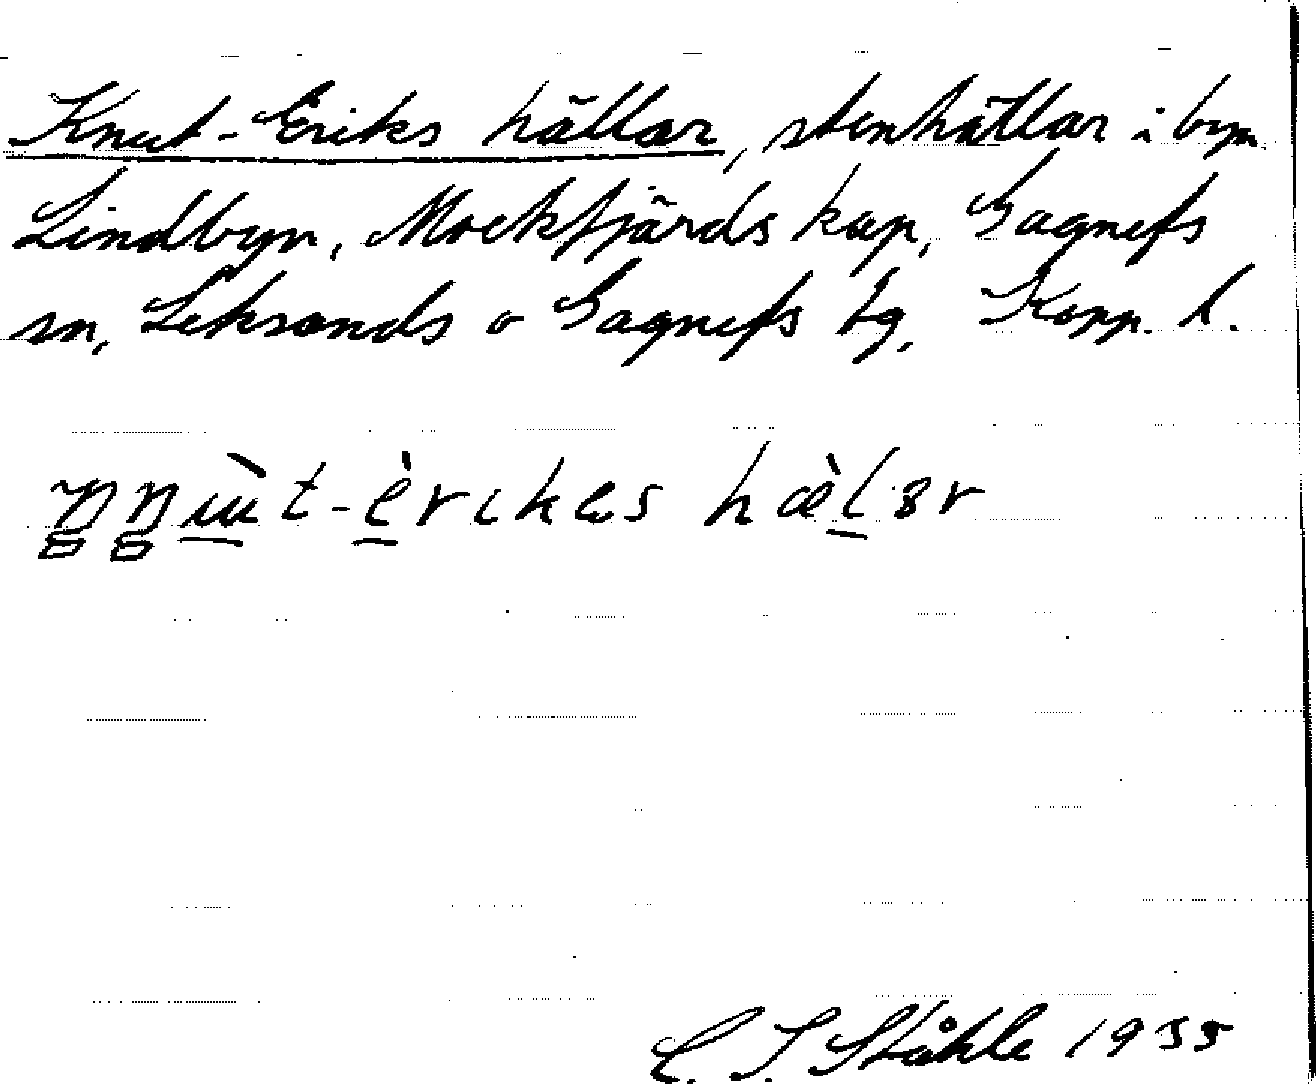 Knut-Eriks hällar, stenhällar i byn
Lindbyn, Mockfjärds kap, Gagnefs
sn, Leksands o Gagnefs tg, Kopp. l.
C. I. Ståhle 1935